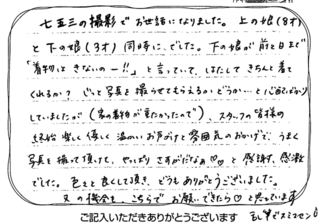 七五三の撮影でお世話になりました。上の娘(8才)
と下の娘(3才)同時に、でした。下の娘が前日まで
「着物はきないのー!!」と言っていて、はたしてきちんと着て
くれるか?じっと写真を撮らせてもらえるかどうか…と心配ばかり
していましたが(家の着物が着たかったので)、スタッフの皆様の
終始楽しく優しく温かいお声がけと雰囲気のおかげで、うまく
写真を撮って頂けて、やっぱりさすがだなぁ♡♡と感謝、感激
でした。色々と良くして頂き、どうもありがとうございました。
又の機会も、こちらでお願いできたら♡と思っています
ご記入いただきありがとうございます